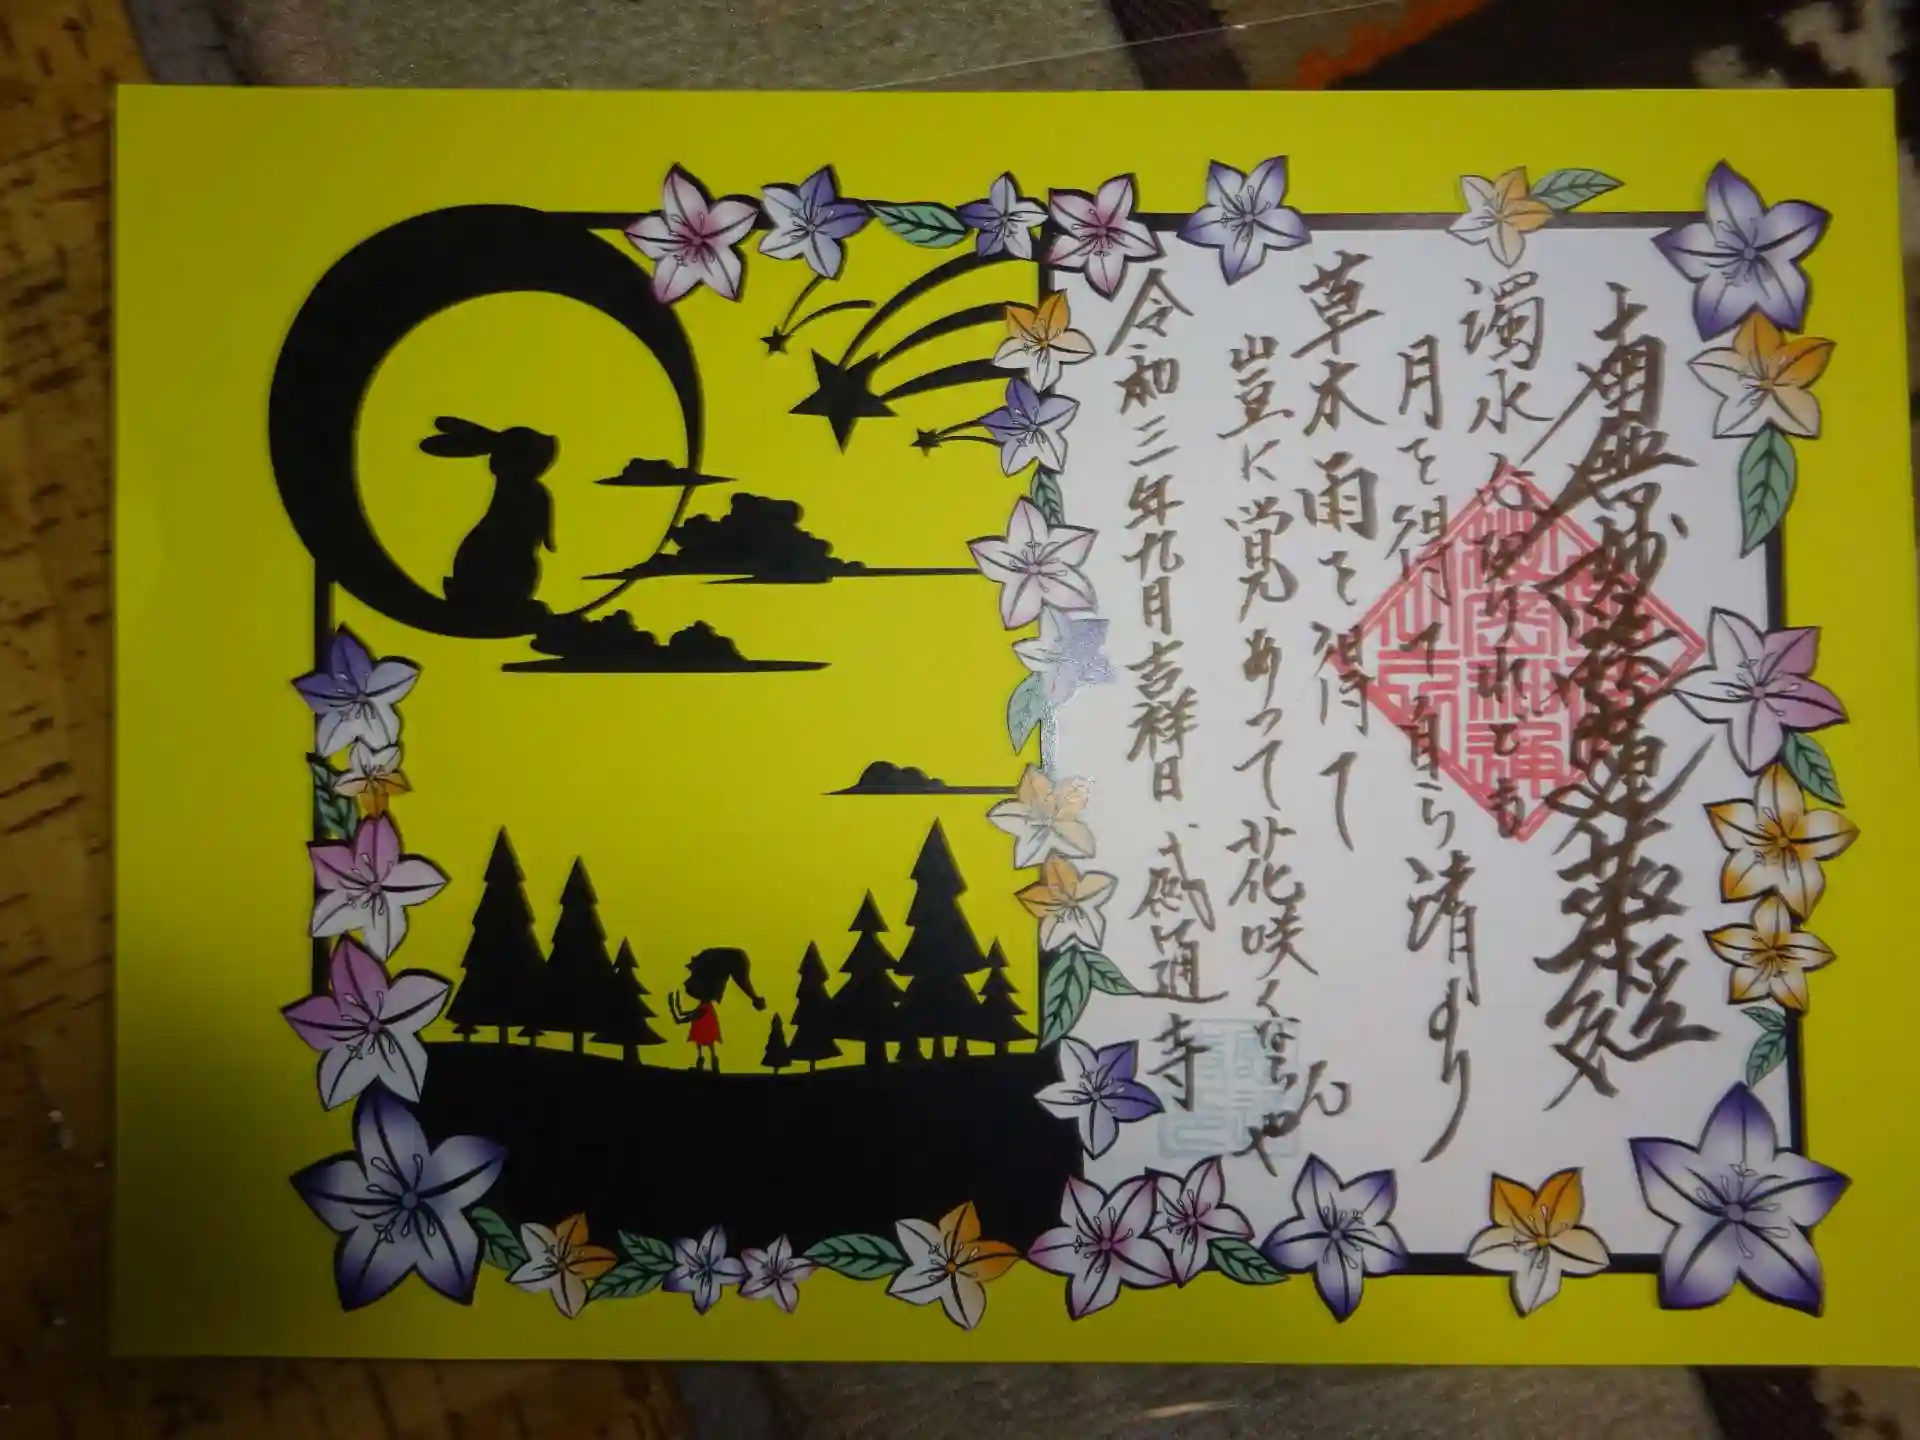 南無妙法蓮華経
濁水心無けれども
月を得て自ら清めり
草木雨を得て
豈に覚あって花咲くならんや
令和三年九月吉祥日 感通寺